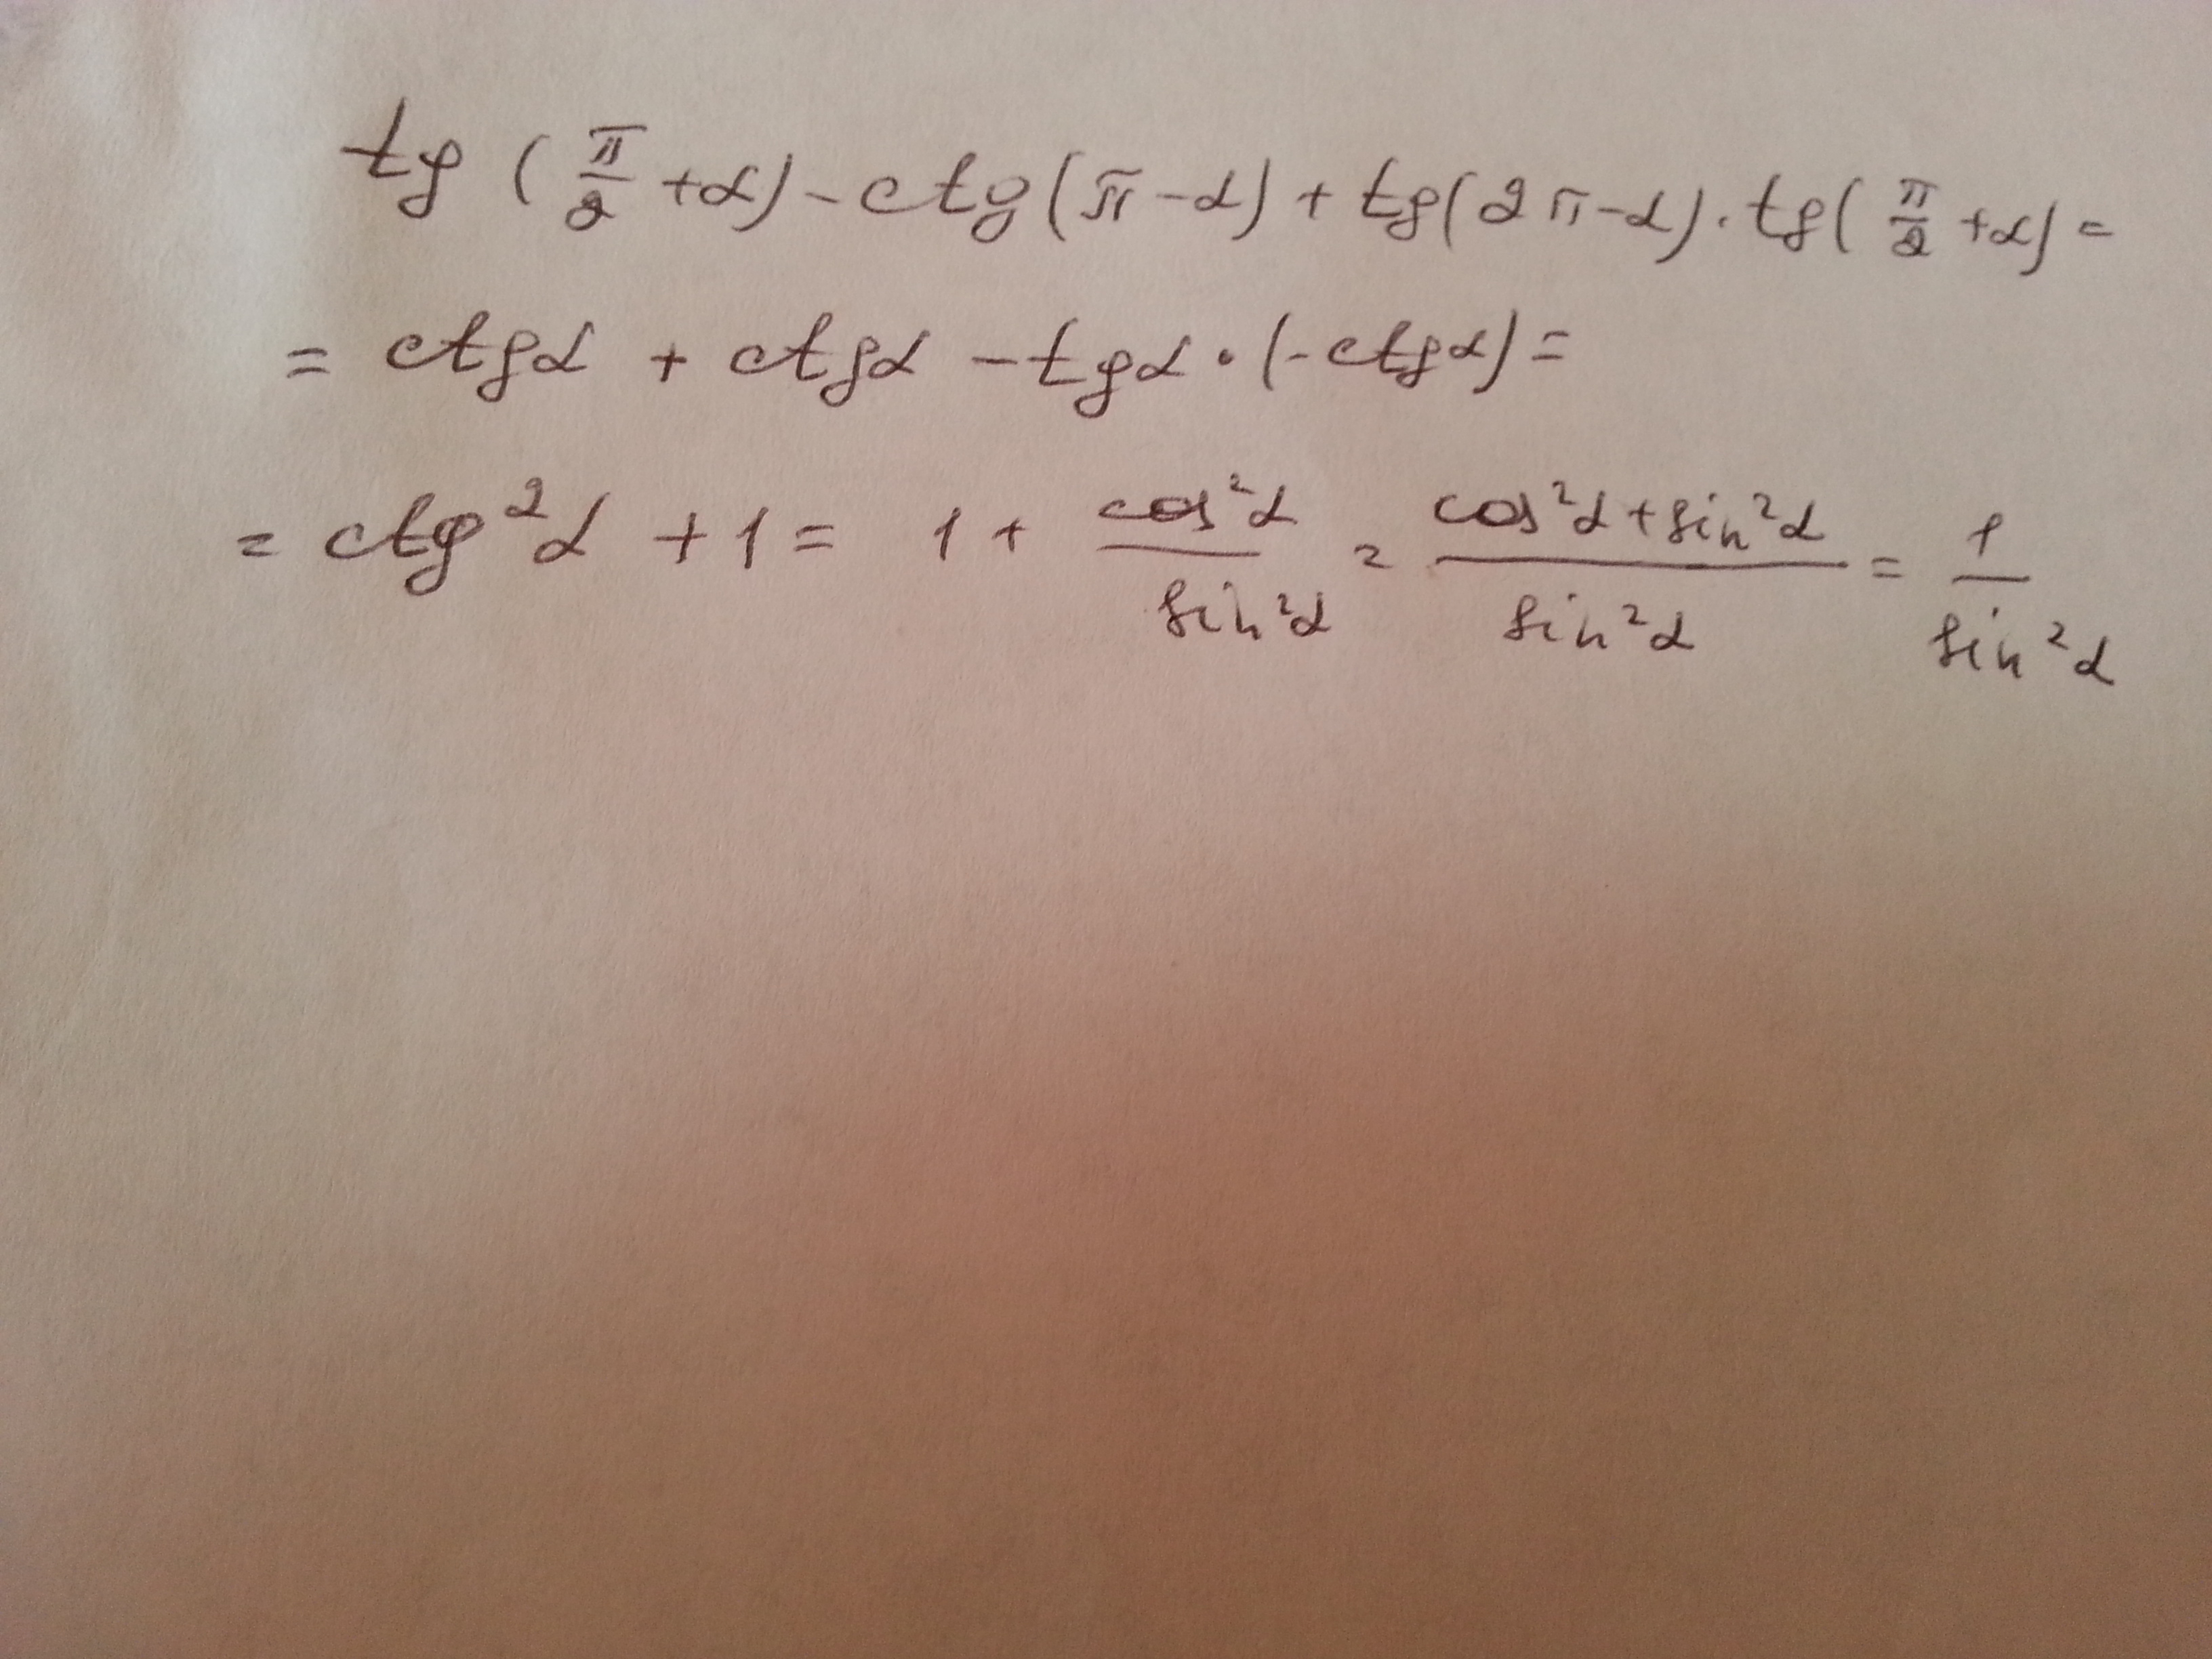 tg (π/2 + α) - ctg (π - α) + tg (2π - α) · tg (π/2 + α) =
= ctg α + ctg α - tg α · (- ctg α) =
= ctg²α + 1 = 1 + cos²α / sin²α = (cos²α + sin²α) / sin²α = 1 / sin²α